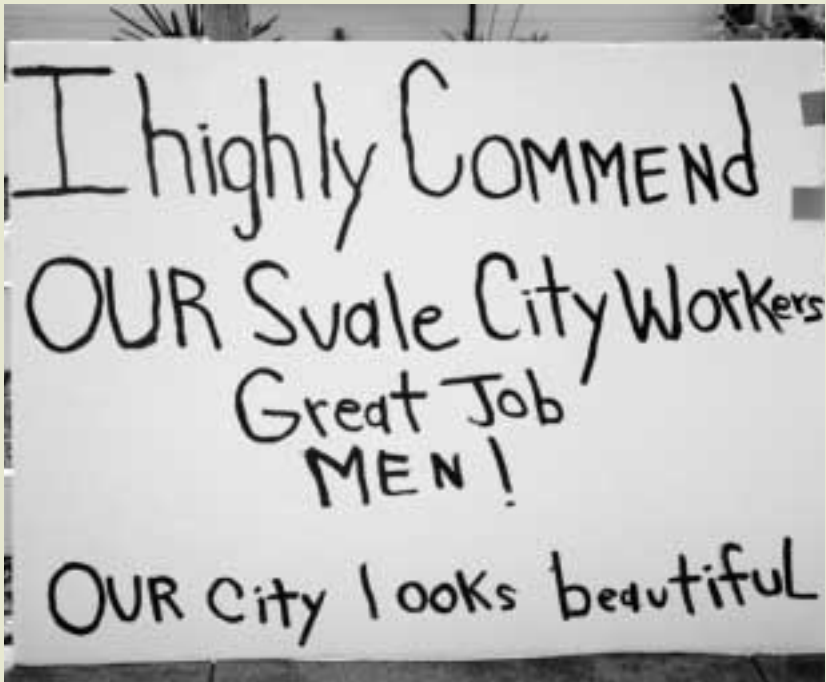 I highly COMMENd
OUR Svale City Workers
Great Job
MEN!
OUR City looks beautifuL